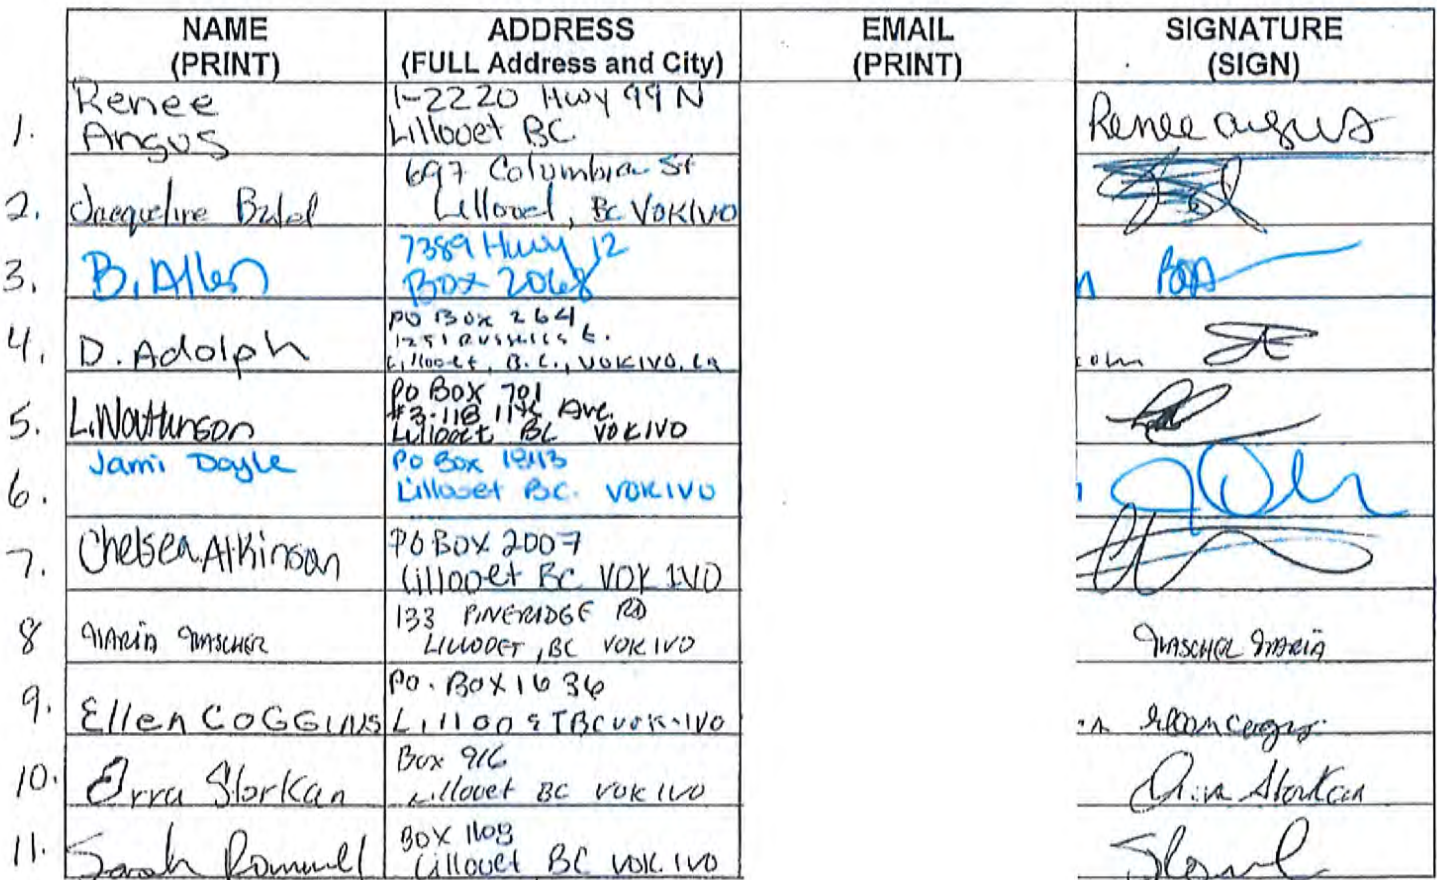 NAME
(PRINT)
ADDRESS
(FULL Address and City)
EMAIL
(PRINT)
SIGNATURE
(SIGN)
1.
Renee
Angus
1-2220 Hwy 99 N
Lillooet BC
Renee angus
2.
Jacqueline
697 Columbia St
Lillooet, BC V0K1V0
3.
B. Allen
7389 Hwy 12
Box 2068
4.
D. Adolph
PO Box 264
Lillooet, B.C., V0K1V0, CA
5.
L. Watkinson
PO Box 701
#3-118 11th Ave.
Lillooet BC V0K1V0
6.
Jami Doyle
PO Box 1843
Lillooet BC. V0K1V0
7.
Chelsea Atkinson
PO BOX 2007
Lillooet BC V0K 1V0
8
MARIA MASCHER
133 PINERIDGE RD
LILLOOET, BC V0K 1V0
MASCHER MARIA
9.
Ellen COGGINS
PO. BOX 1636
LillooeT BC V0K-1V0
10.
Storkan
Box 916
Lillooet BC V0K 1V0
Storkan
11.
Sarah
BOX 1109
Lillooet BC V0K 1V0